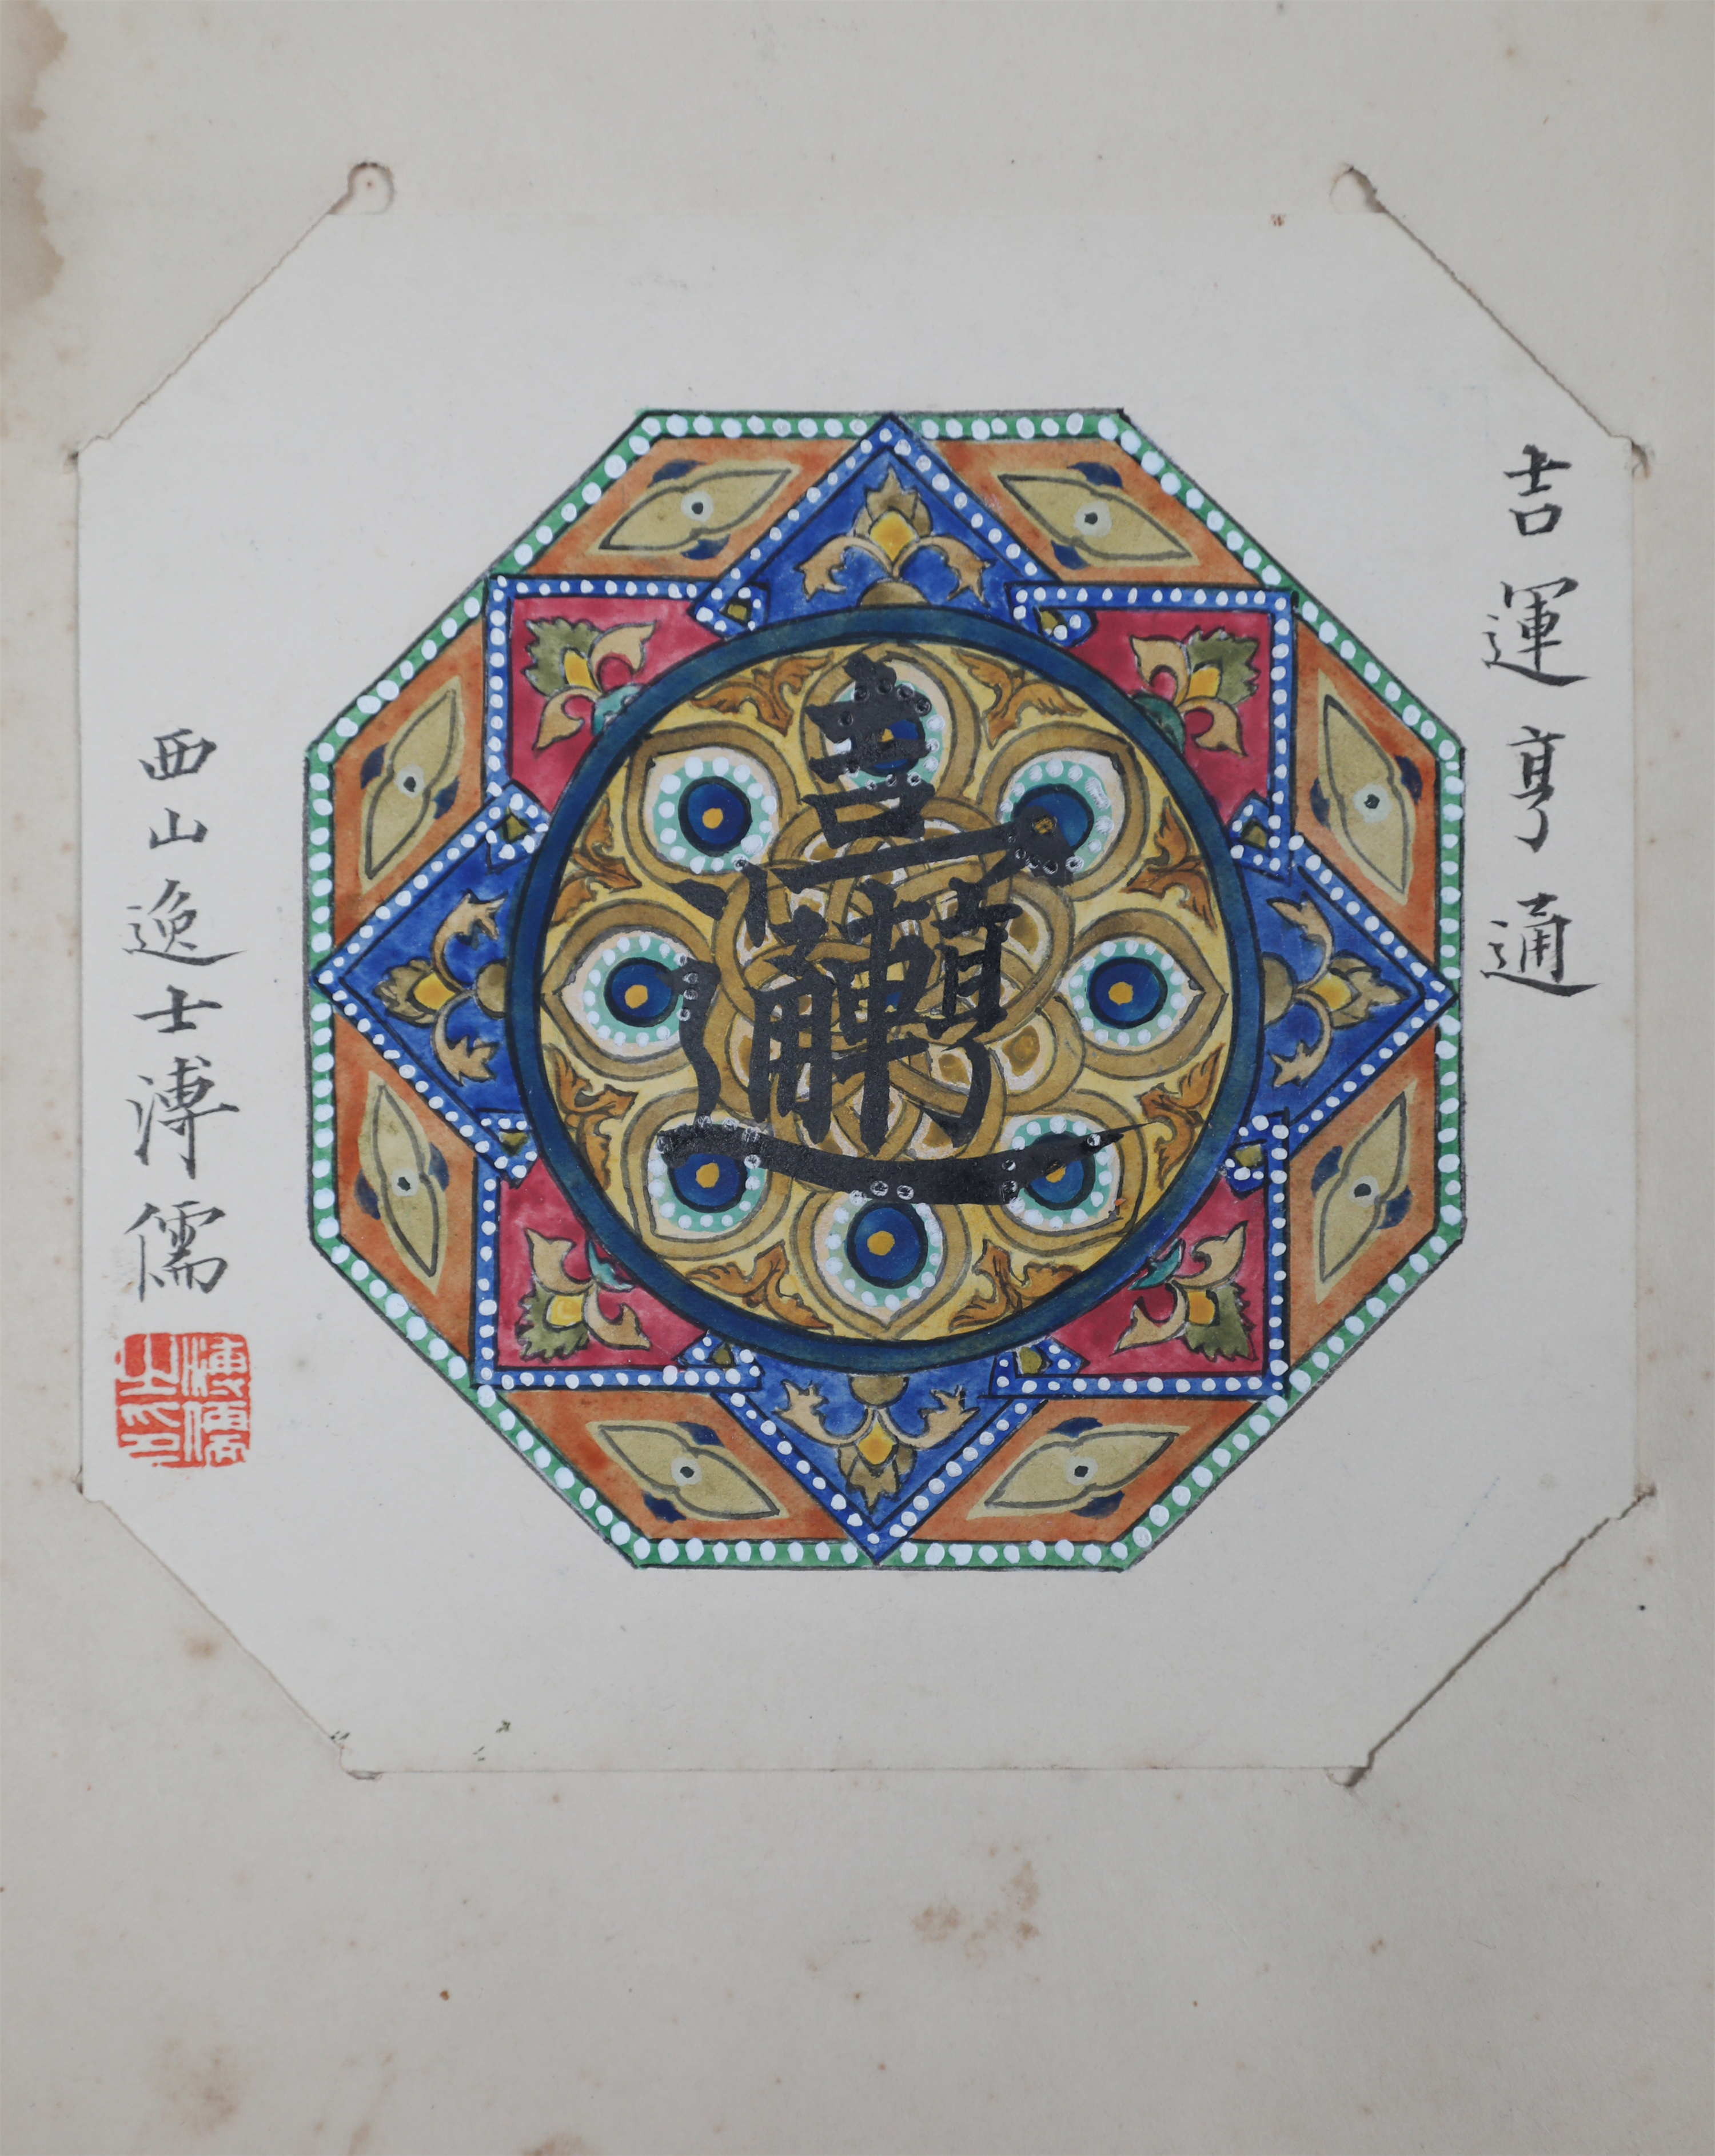 吉運亨通
西山逸士溥儒
溥儒之印